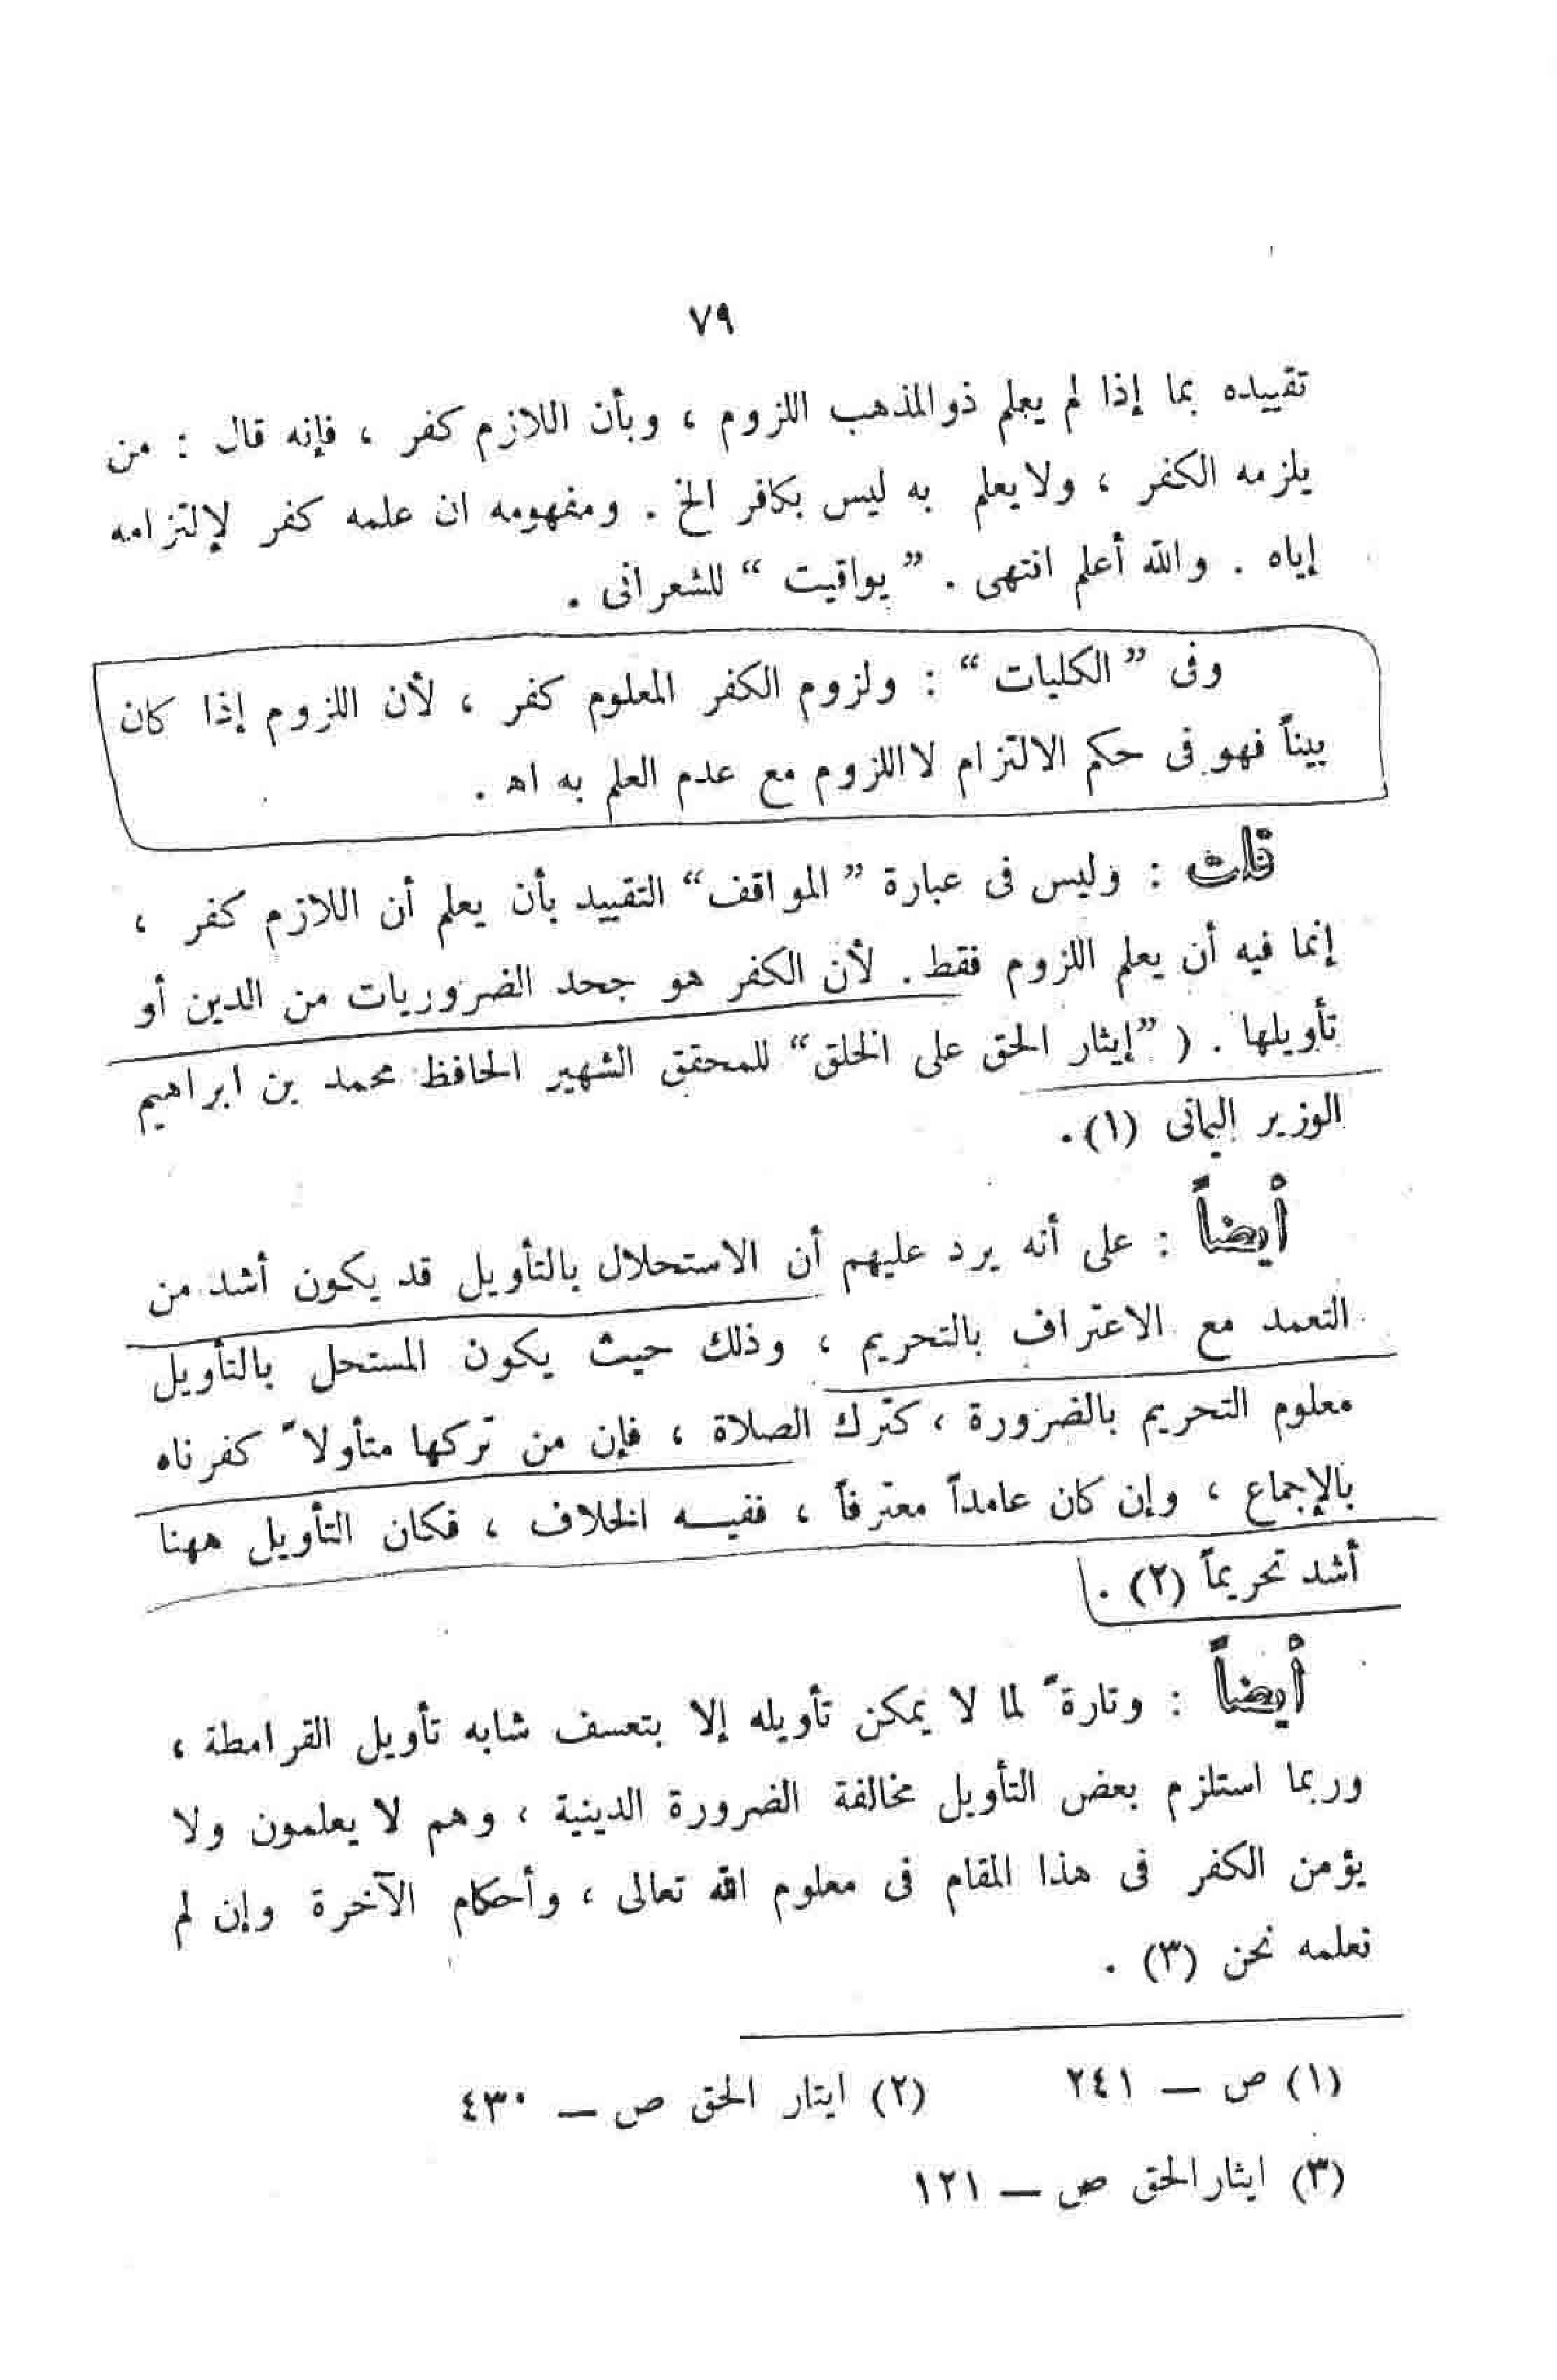 ٧٩
تقييده بما إذا لم يعلم ذوالمذهب اللزوم ، وبأن اللازم كفر ، فإنه قال : من
يلزمه الكفر ، ولايعلم به ليس بكافر الخ . ومفهومه ان علمه كفر لإلتزامه
إياه . والله أعلم انتهى . ”يواقيت“ للشعرانى .
وفى ”الكليات“ : ولزوم الكفر المعلوم كفر ، لأن اللزوم إذا كان
بيناً فهو فى حكم الالتزام لااللزوم مع عدم العلم به اه .
قلت : وليس فى عبارة ”المواقف“ التقييد بأن يعلم أن اللازم كفر ،
إنما فيه أن يعلم اللزوم فقط . لأن الكفر هو جحد الضروريات من الدين أو
تأويلها . ( ”إيثار الحق على الخلق“ للمحقق الشهير الحافظ محمد بن ابراهيم
الوزير اليمانى (١) .
أيضاً : على أنه يرد عليهم أن الاستحلال بالتأويل قد يكون أشد من
التعمد مع الاعتراف بالتحريم ، وذلك حيث يكون المستحل بالتأويل
معلوم التحريم بالضرورة ، كترك الصلاة ، فإن من تركها متأولاً كفرناه
بالإجماع ، وإن كان عامداً معترفاً ، ففيه الخلاف ، فكان التأويل ههنا
أشد تحريماً (٢) .
أيضاً : وتارةً لما لا يمكن تأويله إلا بتعسف شابه تأويل القرامطة ،
وربما استلزم بعض التأويل مخالفة الضرورة الدينية ، وهم لا يعلمون ولا
يؤمن الكفر فى هذا المقام فى معلوم الله تعالى ، وأحكام الآخرة وإن لم
نعلمه نحن (٣) .
(١) ص — ٢٤١ (٢) ايثار الحق ص — ٤٣٠
(٣) ايثارالحق ص — ١٢١